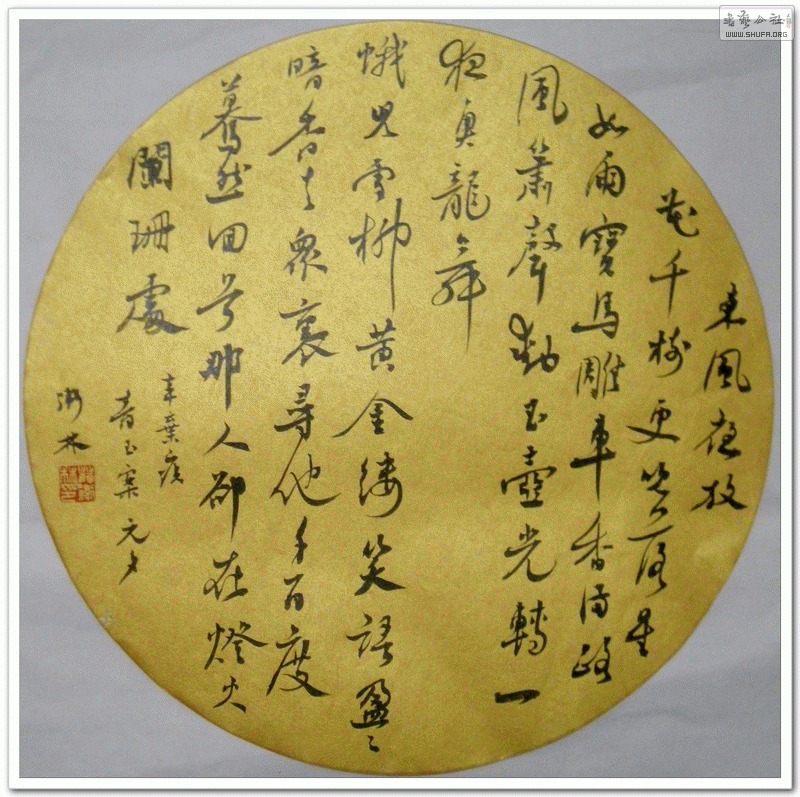 東風夜放
花千樹更吹落星
如雨寶馬雕車香滿路
風簫聲動玉壺光轉一
夜魚龍舞
蛾兒雪柳黃金縷笑語盈々
暗香去衆裏尋他千百度
驀然回首那人卻在燈火
闌珊處
辛棄疾
青玉案元夕
林
書藝公社
WWW.SHUFA.ORG